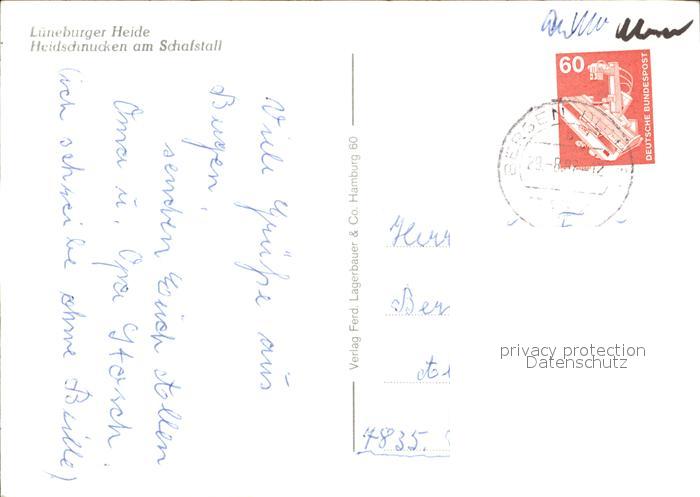 Lüneburger Heide
Heidschnucken am Schafstall
Viele Grüße aus
senden Euch Allen
Oma u. Opa Storch.
(ich schreibe ohne Brille)
Verlag Ferd. Lagerbauer & Co. Hamburg 60
60
DEUTSCHE BUNDESPOST
BERGEN
Herr
Ber
7835.
privacy protection
Datenschutz